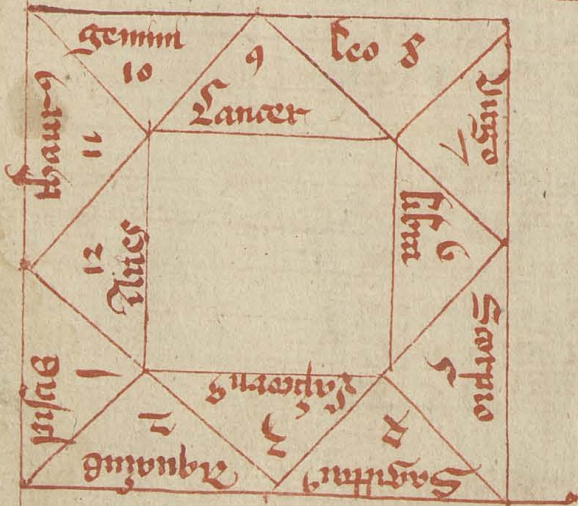 gemini
10
9
Cancer
leo 8
virgo
7
libra
6
Scorpio
5
Sagittarius
4
Capricornus
3
Aquarius
2
pisces
1
Aries
12
Thaurus
11